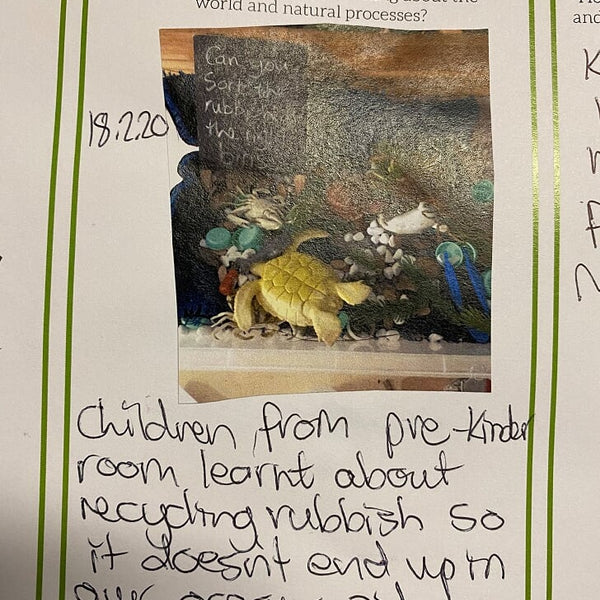 about the
world and natural processes?
and
18.2.20
Can you
Sort the
rubbish
the
bins
children from pre-kinder
room learnt about
recycling rubbish so
it doesn't end up in
our